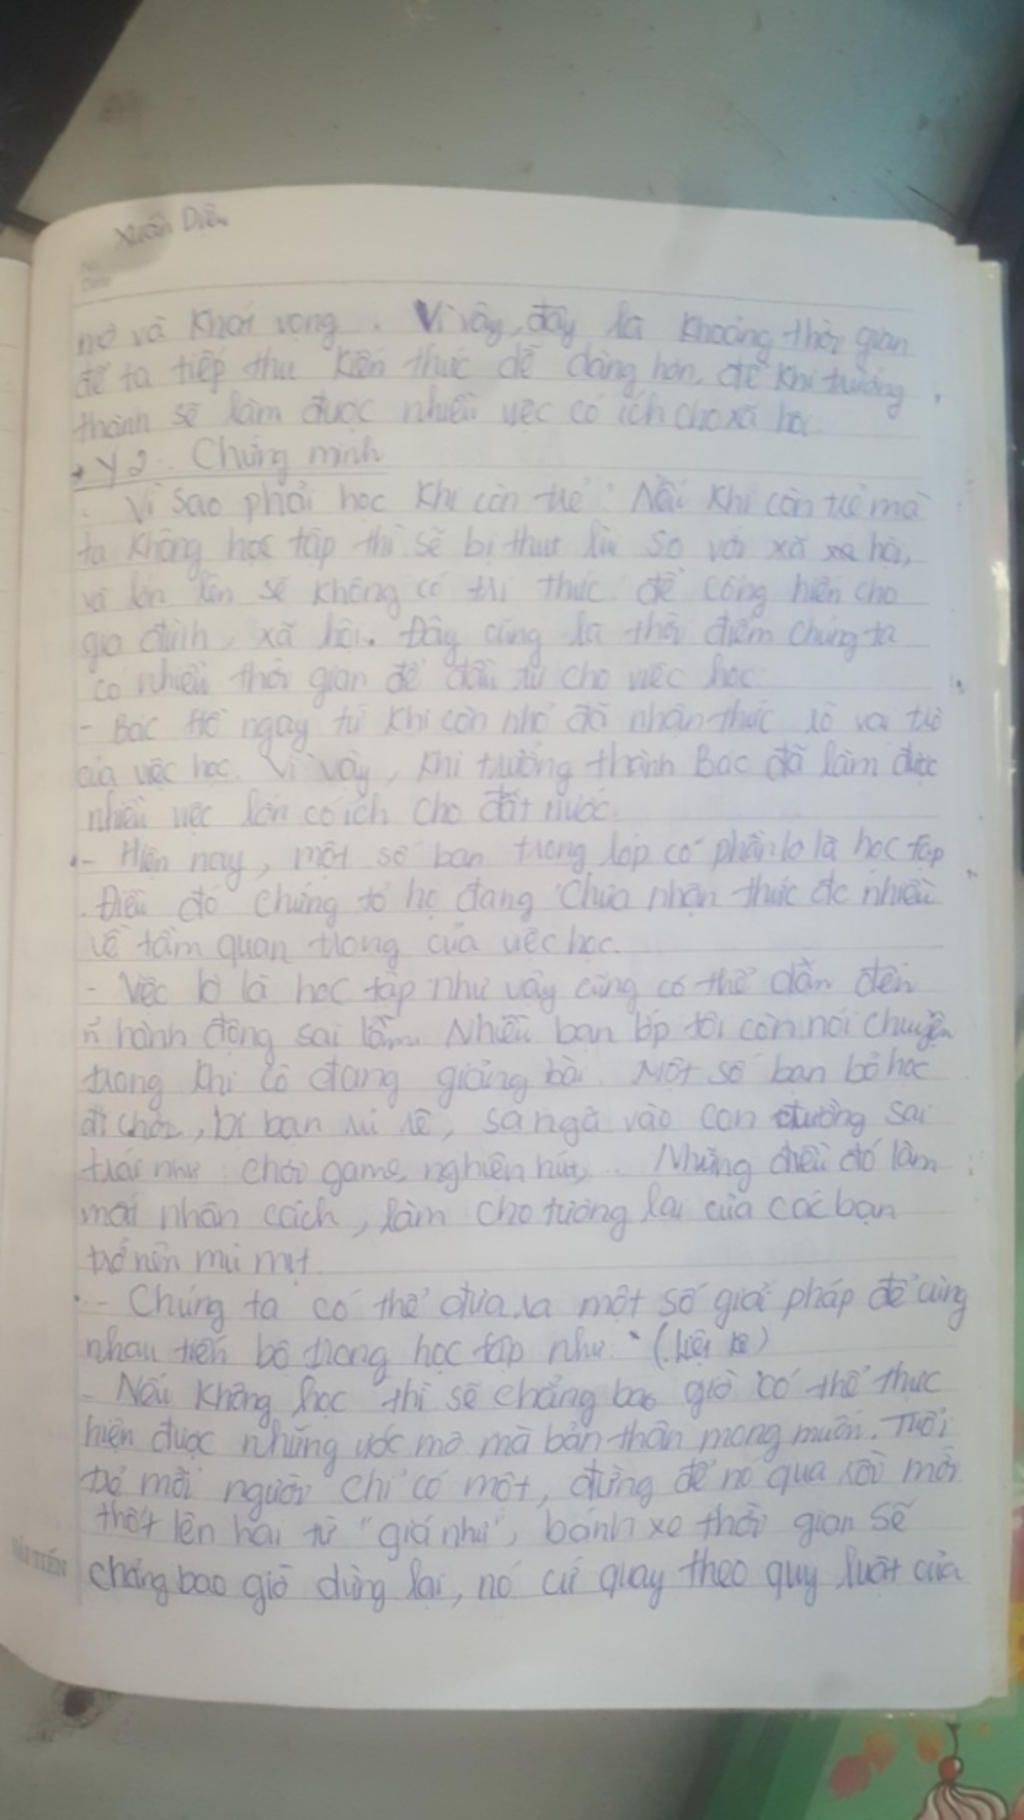 Xuân Diệu
No.
Date
mơ và khát vọng. Vì vậy, đây là khoảng thời gian
để ta tiếp thu kiến thức dễ dàng hơn, để khi trưởng
thành sẽ làm được nhiều việc có ích cho xã hội
→ Ý 2: Chứng minh
- Vì sao phải học khi còn trẻ: Nếu khi còn trẻ mà
ta không học tập thì sẽ bị thụt lùi so với xã hội,
và lớn lên sẽ không có tri thức để cống hiến cho
gia đình, xã hội. Đây cũng là thời điểm chúng ta
có nhiều thời gian để đầu tư cho việc học.
- Bác Hồ ngay từ khi còn nhỏ đã nhận thức rõ vai trò
của việc học. Vì vậy, khi trưởng thành Bác đã làm được
nhiều việc lớn có ích cho đất nước.
- Hiện nay, một số bạn trong lớp có phần lơ là học tập
Điều đó chứng tỏ họ đang chưa nhận thức đc nhiều
về tầm quan trọng của việc học.
- Việc lơ là học tập như vậy cũng có thể dẫn đến
n~ hành động sai lầm. Nhiều bạn lớp tôi còn nói chuyện
trong khi cô đang giảng bài. Một số bạn bỏ học
đi chơi, bị bạn rủ rê, sa ngã vào con đường sai
trái như: chơi game, nghiện hút,... Những điều đó làm
mất nhân cách, làm cho tương lai của các bạn
trở nên mù mịt.
- Chúng ta có thể đưa ra một số giải pháp để cùng
nhau tiến bộ trong học tập như: (Liệt kê)
- Nếu không học thì sẽ chẳng bao giờ có thể thực
hiện được những ước mơ mà bản thân mong muốn. Tuổi
trẻ mỗi người chỉ có một, đừng để nó qua rồi mới
thốt lên hai từ "giá như", bánh xe thời gian sẽ
chẳng bao giờ dừng lại, nó cứ quay theo quy luật của
HẢI TIẾN